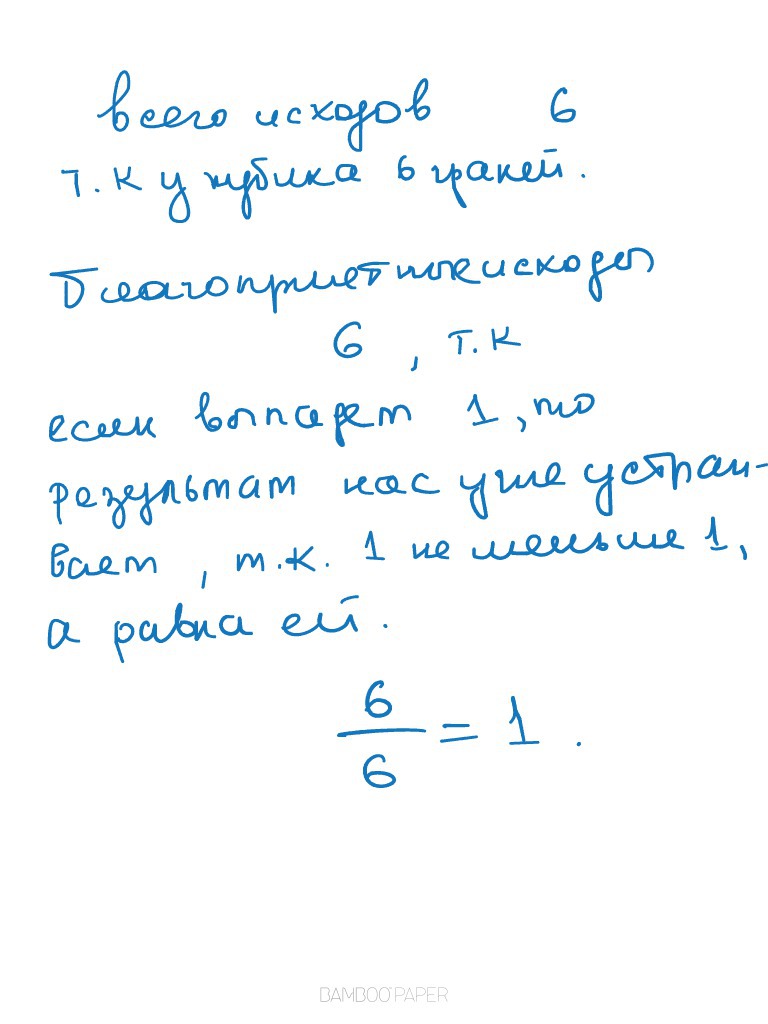 всего исходов 6
т.к у кубика 6 граней.
Благоприятные исходы
6 , т.к
если выпадет 1, то
результат нас уже устраи-
вает, т.к. 1 не меньше 1,
а равна ей.
6
6 = 1 .
BAMBOO PAPER